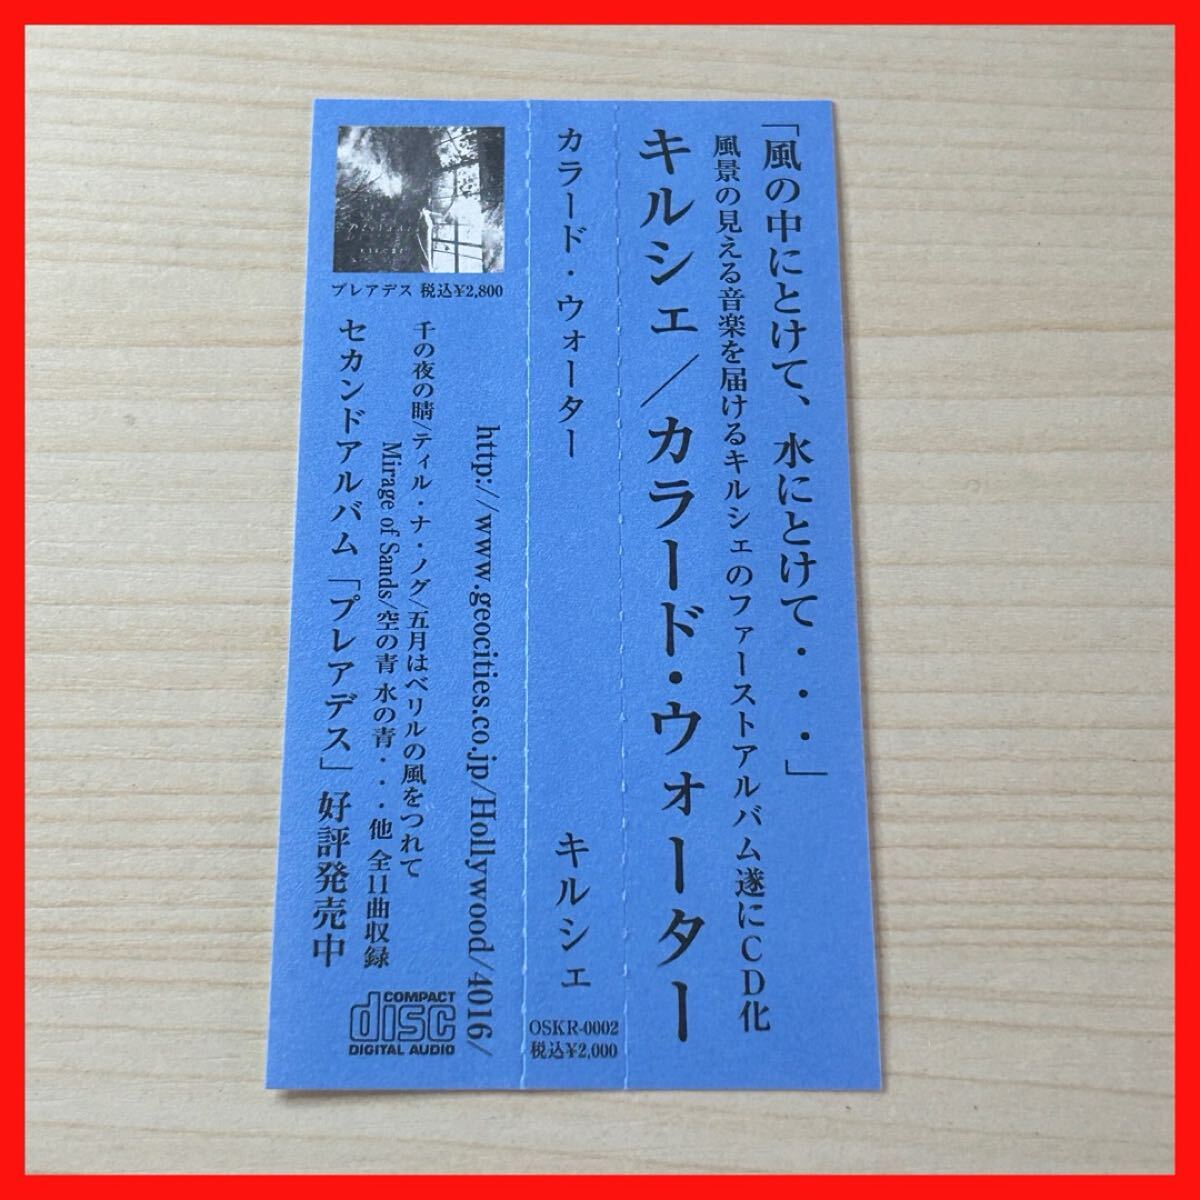 「風の中にとけて、水にとけて・・・」
風景の見える音楽を届けるキルシェのファーストアルバム遂にCD化
キルシェ／カラード・ウォーター
カラード・ウォーター
キルシェ
OSKR-0002
税込¥2,000
http://www.geocities.co.jp/Hollywood/4016/
プレアデス 税込¥2,800
千の夜の晴/ティル・ナ・ノグ/五月はベリルの風をつれて
Mirage of Sands/空の青 水の青・・・他 全11曲収録
セカンドアルバム「プレアデス」好評発売中
COMPACT
disc
DIGITAL AUDIO